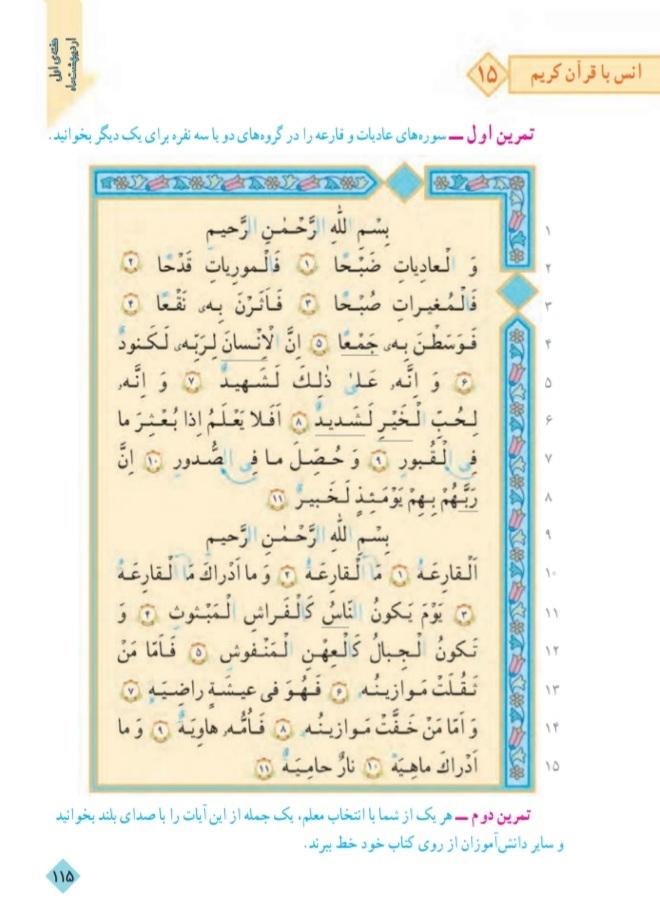 هفته‌ی اول
اردیبهشت‌ماه
انس با قرآن کریم ۱۵
تمرین اول ــ سوره‌های عادیات و قارعه را در گروه‌های دو یا سه نفره برای یک دیگر بخوانید.
بِسْمِ اللّٰهِ الرَّحْمٰنِ الرَّحيمِ ۱
وَ الْعادِياتِ ضَبْحًا ۱ فَالْمورِياتِ قَدْحًا ۲ ۲
فَالْمُغيراتِ صُبْحًا ۳ فَاَثَرْنَ بِهٖ نَقْعًا ۴ ۳
فَوَسَطْنَ بِهٖ جَمْعًا ۵ اِنَّ الْاِنْسانَ لِرَبِّهٖ لَكَنودٌ ۴
۶ وَ اِنَّهٗ عَلىٰ ذٰلِكَ لَشَهيدٌ ۷ وَ اِنَّهٗ ۵
لِحُبِّ الْخَيْرِ لَشَديدٌ ۸ اَفَلا يَعْلَمُ اِذا بُعْثِرَ ما ۶
فِي الْقُبورِ ۹ وَ حُصِّلَ ما فِي الصُّدورِ ۱۰ اِنَّ ۷
رَبَّهُمْ بِهِمْ يَوْمَئِذٍ لَخَبيرٌ ۱۱ ۸
بِسْمِ اللّٰهِ الرَّحْمٰنِ الرَّحيمِ ۹
اَلْقارِعَةُ ۱ مَا الْقارِعَةُ ۲ وَ ما اَدْراكَ مَا الْقارِعَةُ ۱۰
۳ يَوْمَ يَكونُ النّاسُ كَالْفَراشِ الْمَبْثوثِ ۴ وَ ۱۱
تَكونُ الْجِبالُ كَالْعِهْنِ الْمَنْفوشِ ۵ فَاَمّا مَنْ ۱۲
ثَقُلَتْ مَوازينُهٗ ۶ فَهُوَ في عيشَةٍ راضِيَةٍ ۷ ۱۳
وَ اَمّا مَنْ خَفَّتْ مَوازينُهٗ ۸ فَاُمُّهٗ هاوِيَةٌ ۹ وَ ما ۱۴
اَدْراكَ ماهِيَهْ ۱۰ نارٌ حامِيَةٌ ۱۱ ۱۵
تمرین دوم ــ هر یک از شما با انتخاب معلم، یک جمله از این آیات را با صدای بلند بخوانید
و سایر دانش‌آموزان از روی کتاب خود خط ببرند.
۱۱۵